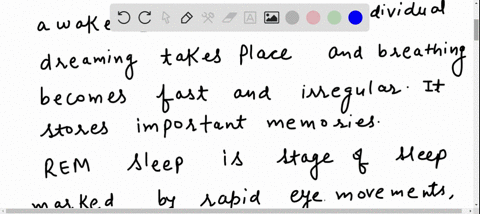 awake dividual
dreaming takes place and breathing
becomes fast and irregular. It
stores important memories.
REM sleep is stage of sleep
marked by rapid eye movements,